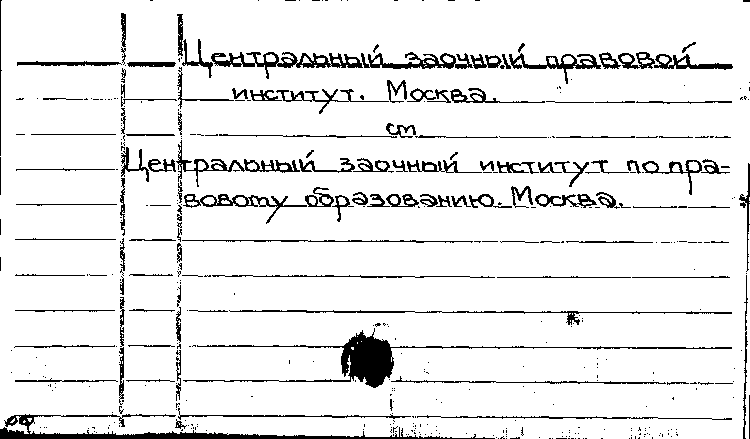 Центральный заочный правовой
институт. Москва.
см
Центральный заочный институт по пра-
вовому образованию. Москва.